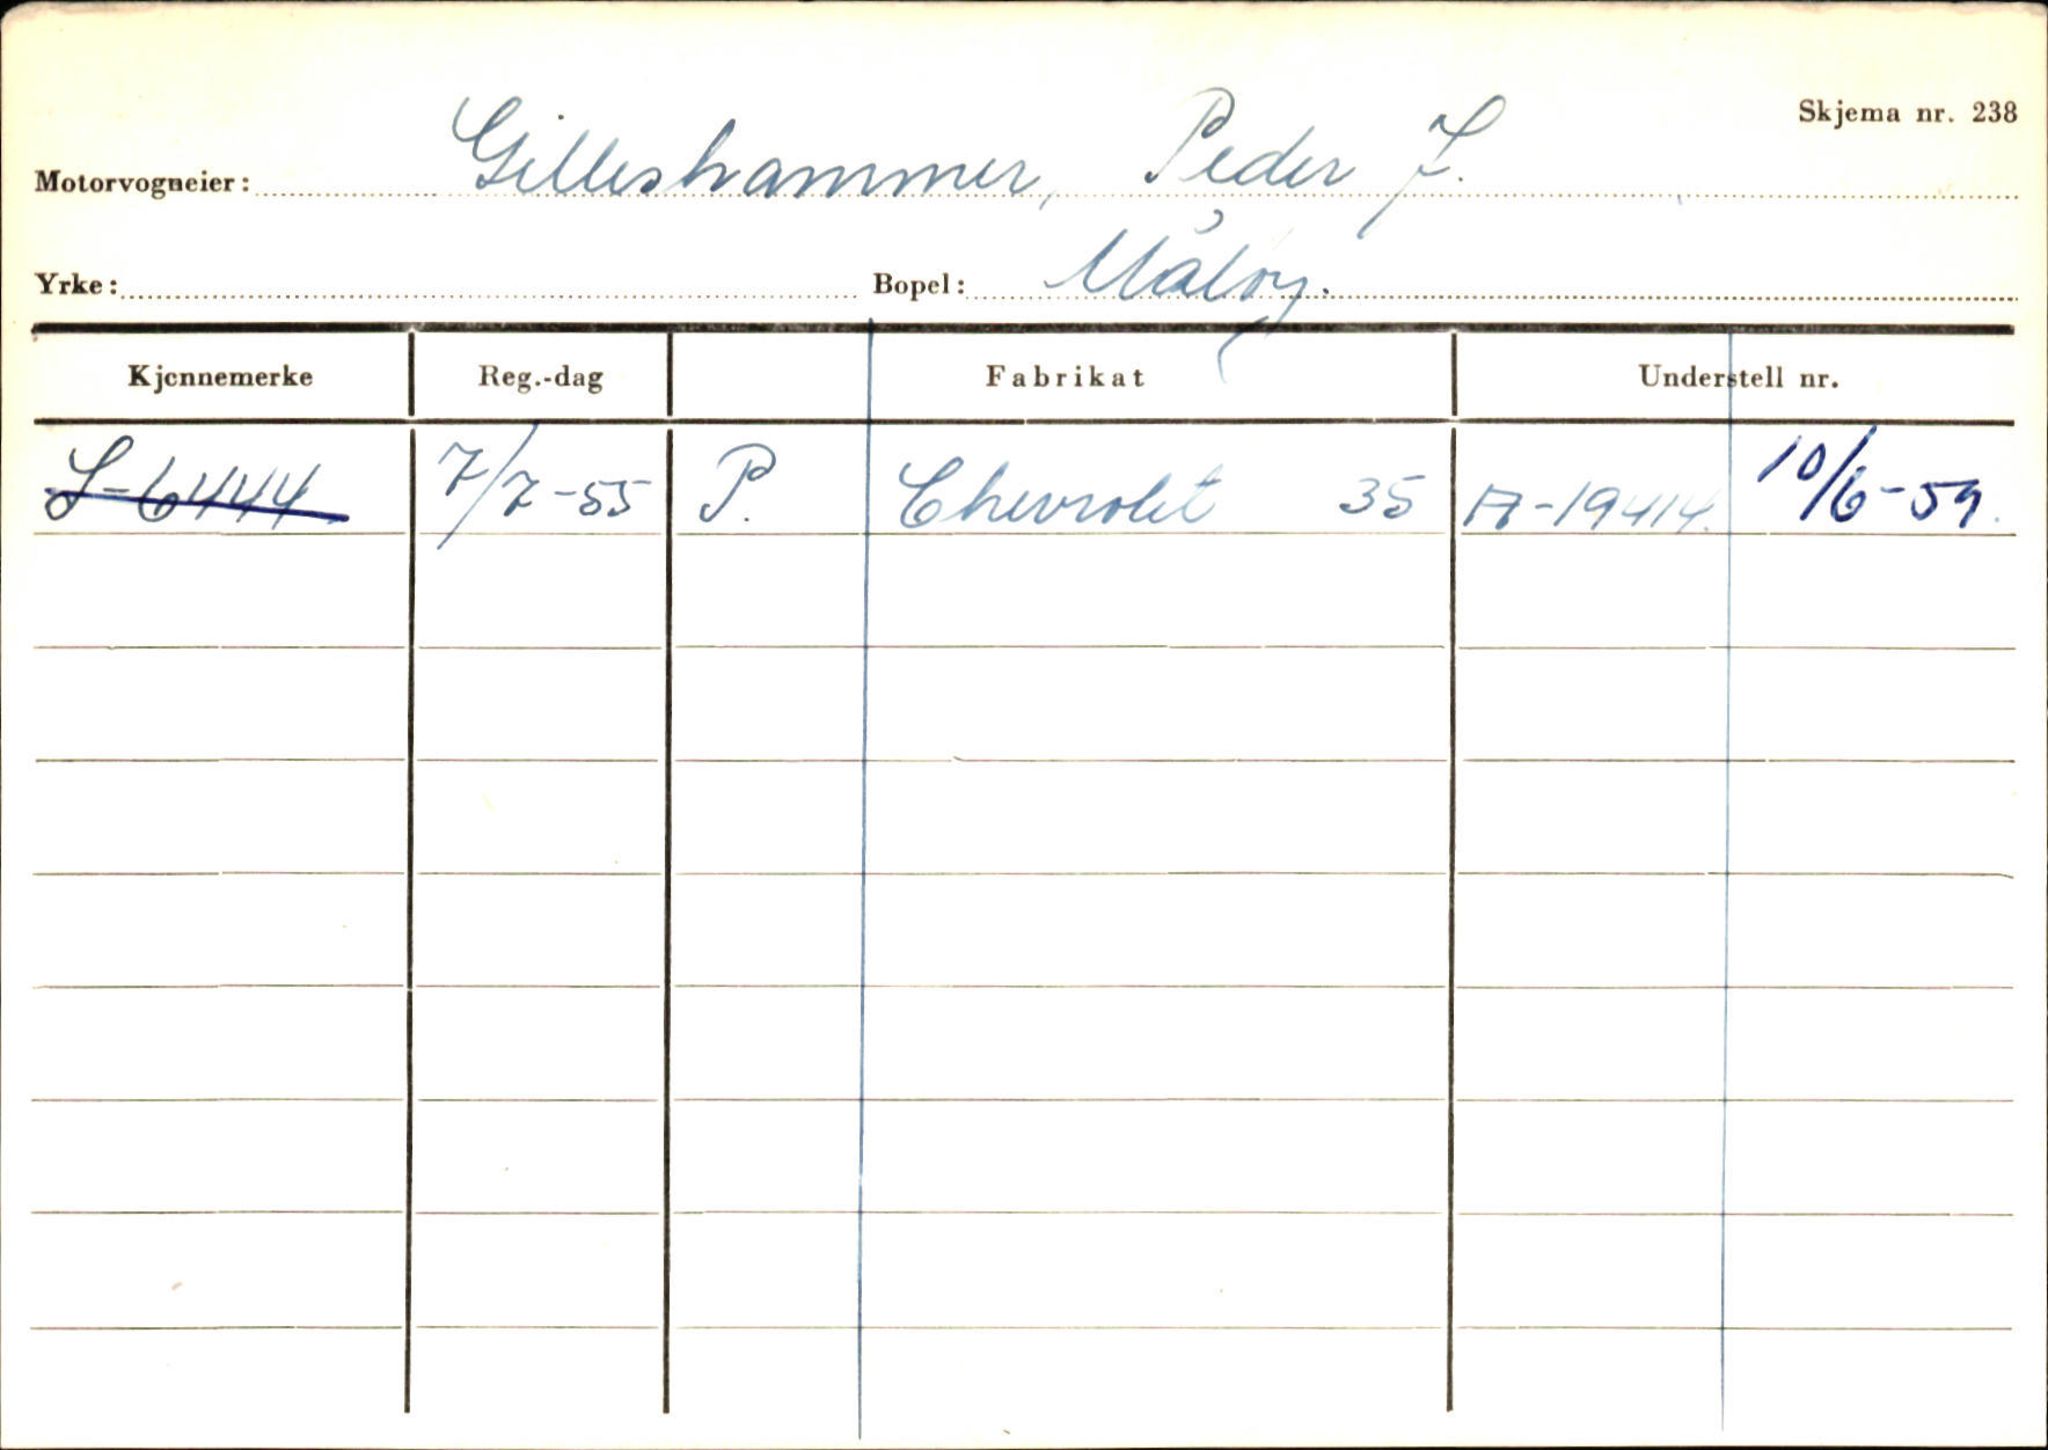 Skjema nr. 238
Motorvogneier: Gilleshammer, Peder J.
Yrke: Bopel: Måløy.
Kjennemerke Reg.-dag Fabrikat Understell nr.
S-6444 7/7-55 P. Chevrolet 35 A-19414. 10/6-59.